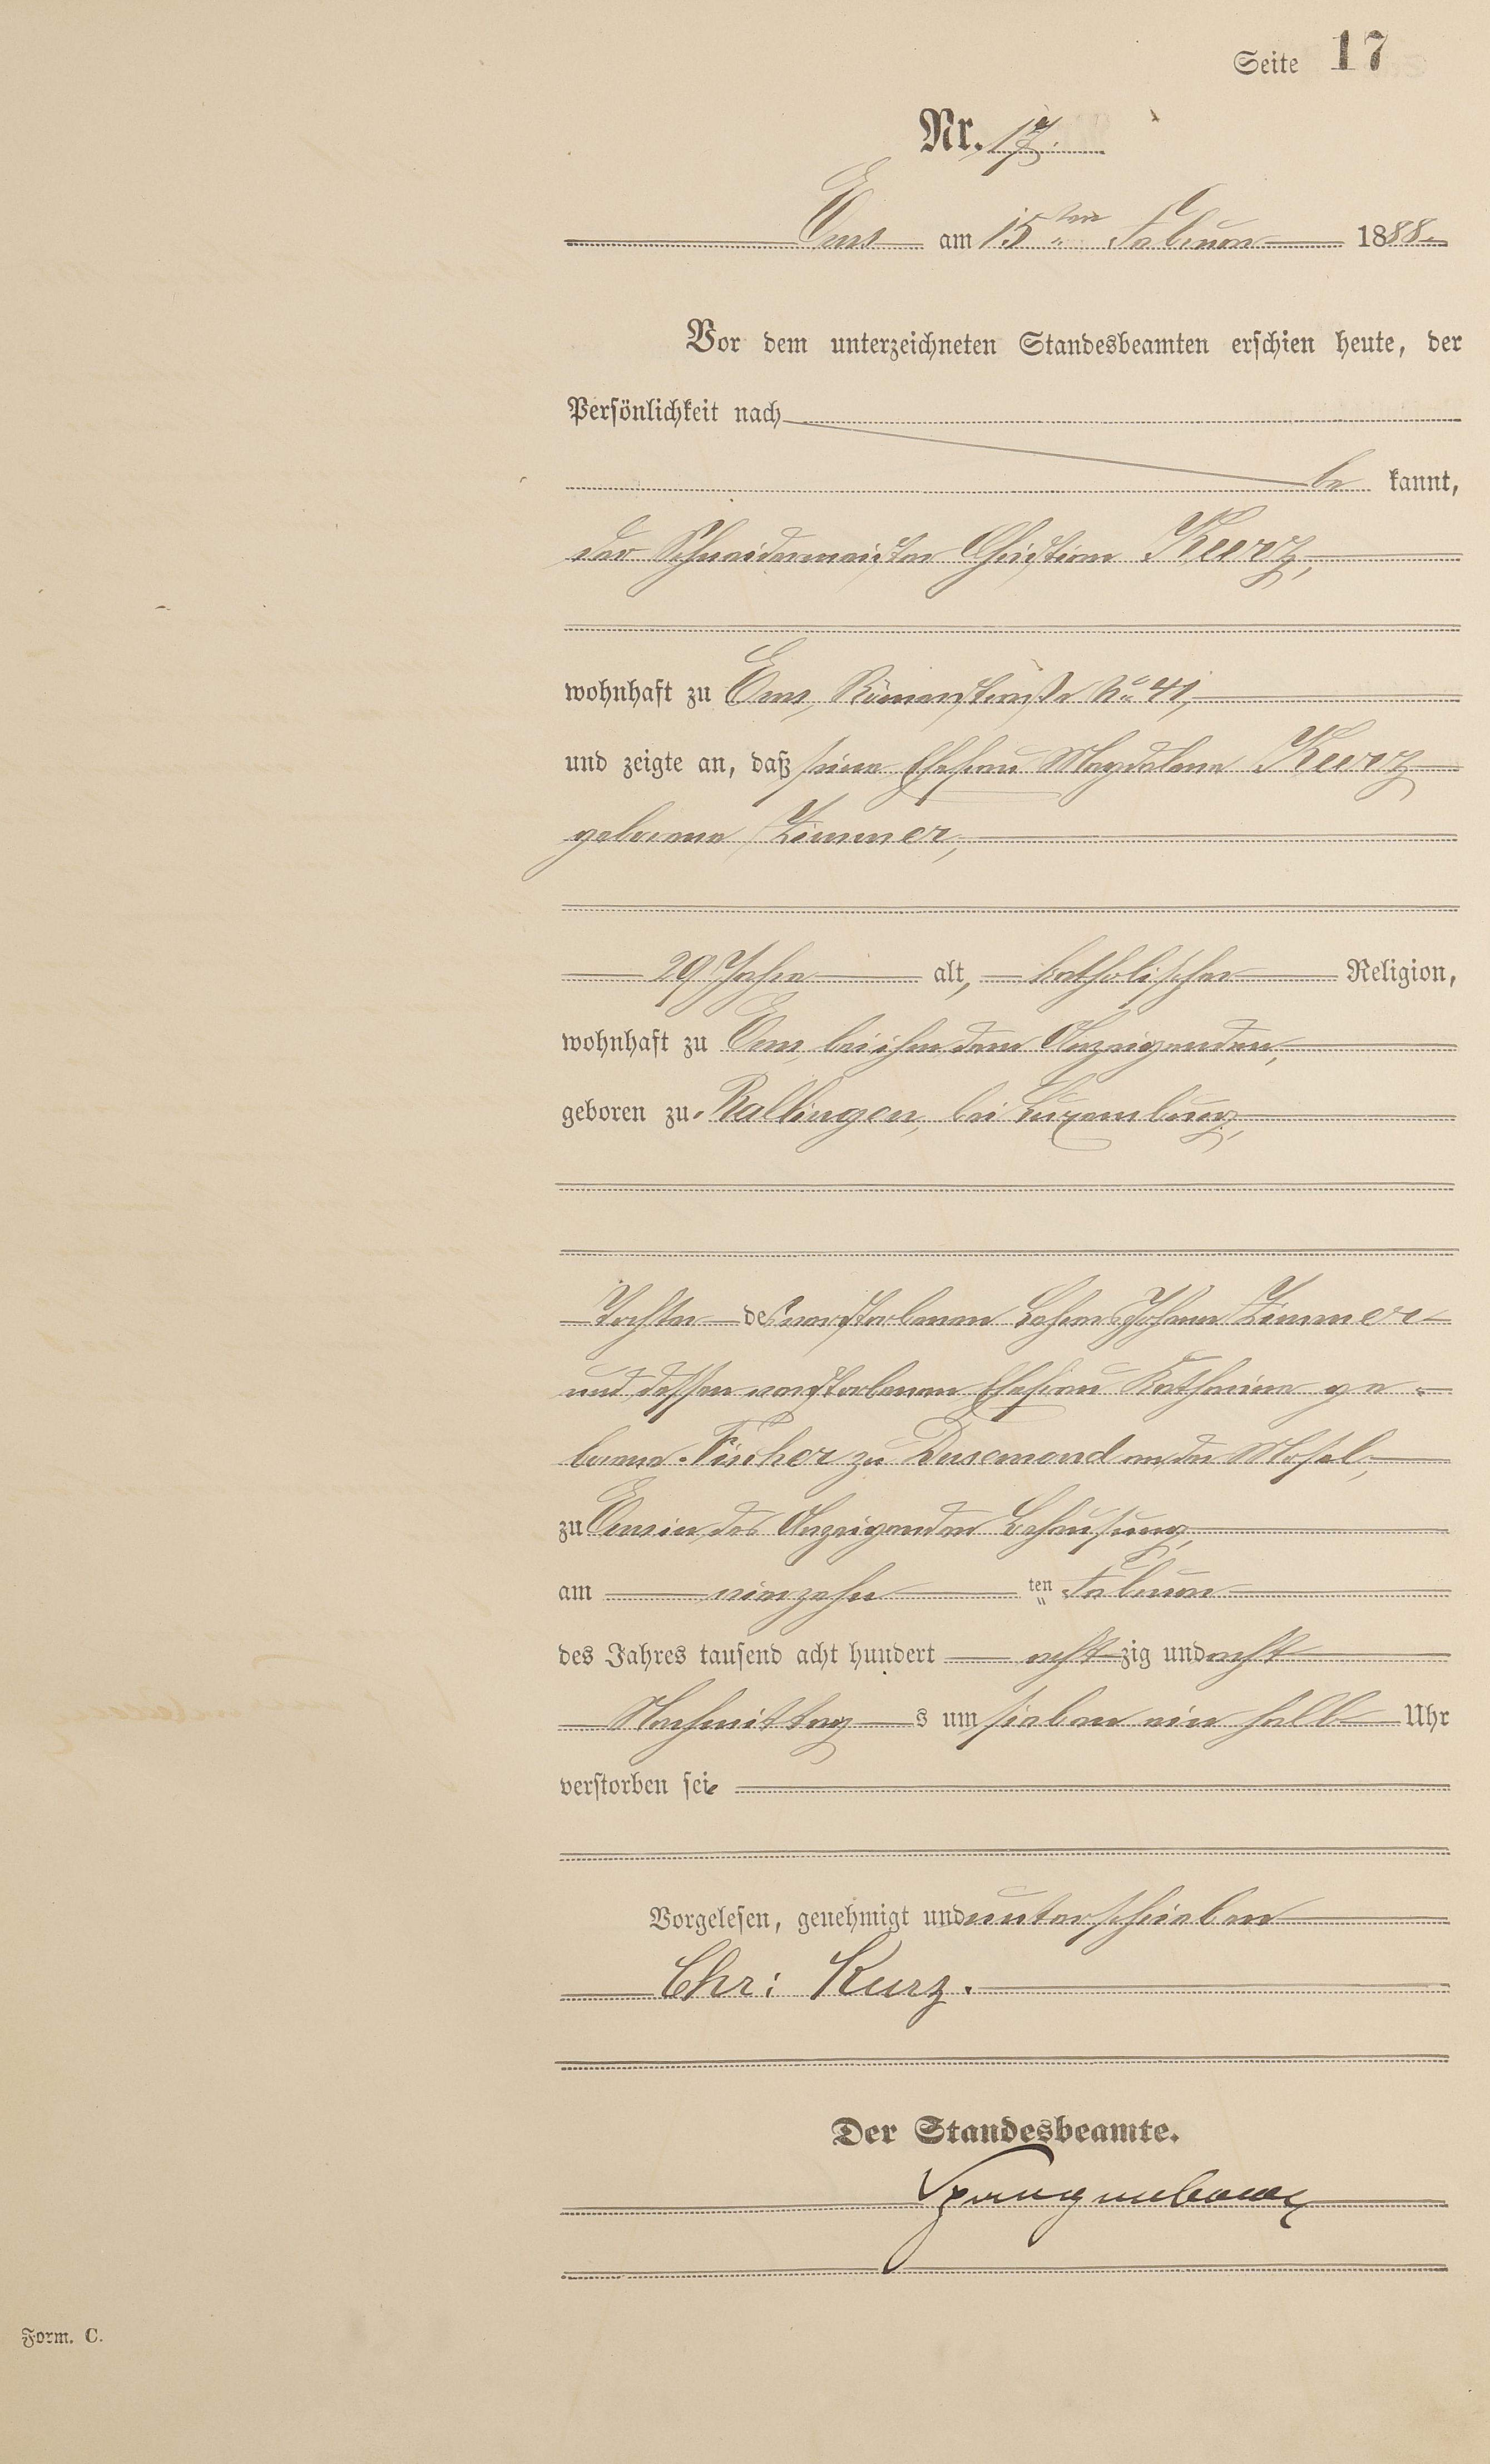 Seite 17
Nr. 17.
Ems am 15ten Februar 1888.
Vor dem unterzeichneten Standesbeamten erschien heute, der
Persönlichkeit nach
be kannt,
der Schneidermeister Christian Kurz,
wohnhaft zu Ems, Römerstraße No 41,
und zeigte an, daß seine Ehefrau Magdalena Kurz
geborene Zimmer,
29 Jahre alt, katholischer Religion,
wohnhaft zu Ems, bei ihm dem Anzeigenden,
geboren zu Rallingen, bei Luxemburg,
Tochter des verstorbenen Lehrers Johann Zimmer
und dessen verstorbenen Ehefrau Katharina ge-
borene Fischer zu Dusemond an der Mosel,
zu Ems in des Anzeigenden Behausung,
am vierzehn ten Februar
des Jahres tausend acht hundert acht zig und acht
Nachmittag s um sieben ein halb Uhr
verstorben sei
Vorgelesen, genehmigt und unterschrieben
Chr: Kurz.
Der Standesbeamte.
Form. C.